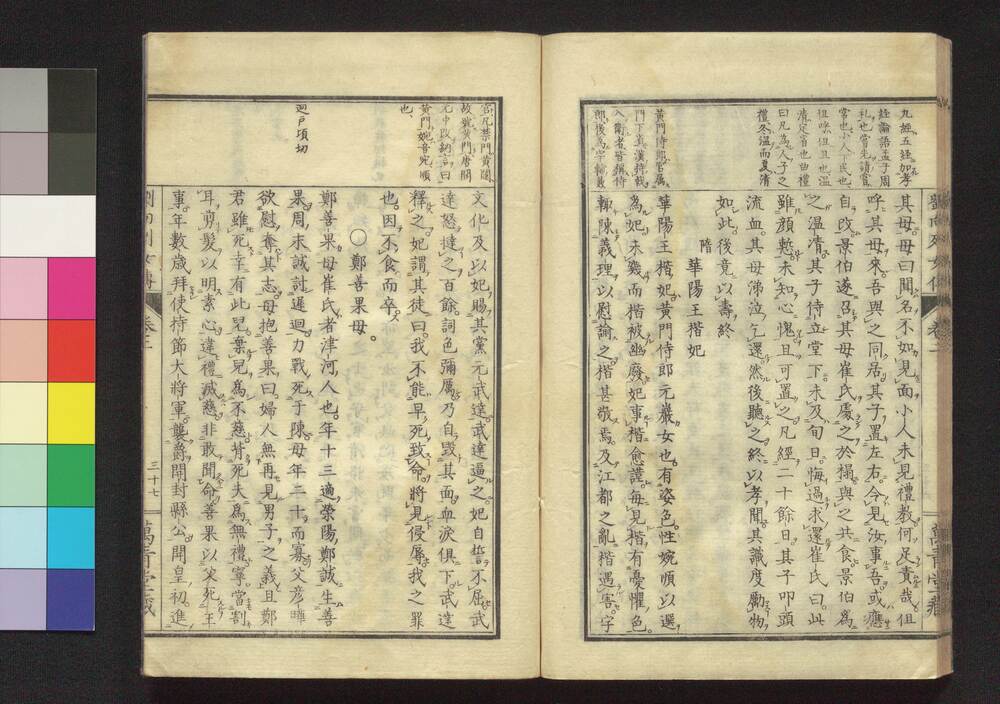 九經五經加孝
經論語孟子周
禮冬溫而夏清
其母。母曰聞名不如見面小人未見禮教何足責哉但
呼其母來。吾與之同居。其子置左右令見汝事吾。或應
自改。景伯遂召其母。崔氏處之於榻。與之共食。景伯為
之溫凊。其子侍立堂下。未及旬日。悔過求還。崔氏曰此
雖顏慙未知心愧且可置之。凡經二十餘日其子叩頭
流血。其母涕泣乞還。然後聽之。終以孝聞。其識度勵物
如此。後竟以壽終
隋　華陽王楷妃
華陽王楷妃黃門侍郎元巖女也。有姿色。性婉順以選
為妃。未幾而楷被幽廢。妃事楷愈謹。每見楷有憂懼色。
輒陳義理以慰諭之。楷甚敬焉。及江都之亂楷遇害。宇
宮凡禁門黃闥
故號黃門唐開
元中改納言曰
黃門婉音宛順
也
迥戶頃切
文化及以妃賜其黨元武達。武達逼之。妃自誓不屈。武
達怒撻之百餘。詞色彌厲。乃自毀其面。血淚俱下。武達
釋之。妃謂其徒曰。我不能早死致命。將見侵辱。我之罪
也。因不食而卒。
〇鄭善果母。
鄭善果母崔氏者津河人也。年十三適滎陽鄭誠。生善
果。周末誠討遲迥。力戰死于陳。母年二十而寡。父彥曄
欲慰奪其志。母抱善果曰婦人無再見男子之義。且鄭
君雖死幸有此兒。棄兒為不慈。背死夫為無禮。寧當割
耳剪髮以明素心。違禮滅慈。非敢聞命。善果以父死王
事。年數歲拜使持節大將軍。襲爵開封縣公。開皇初。進
三十七